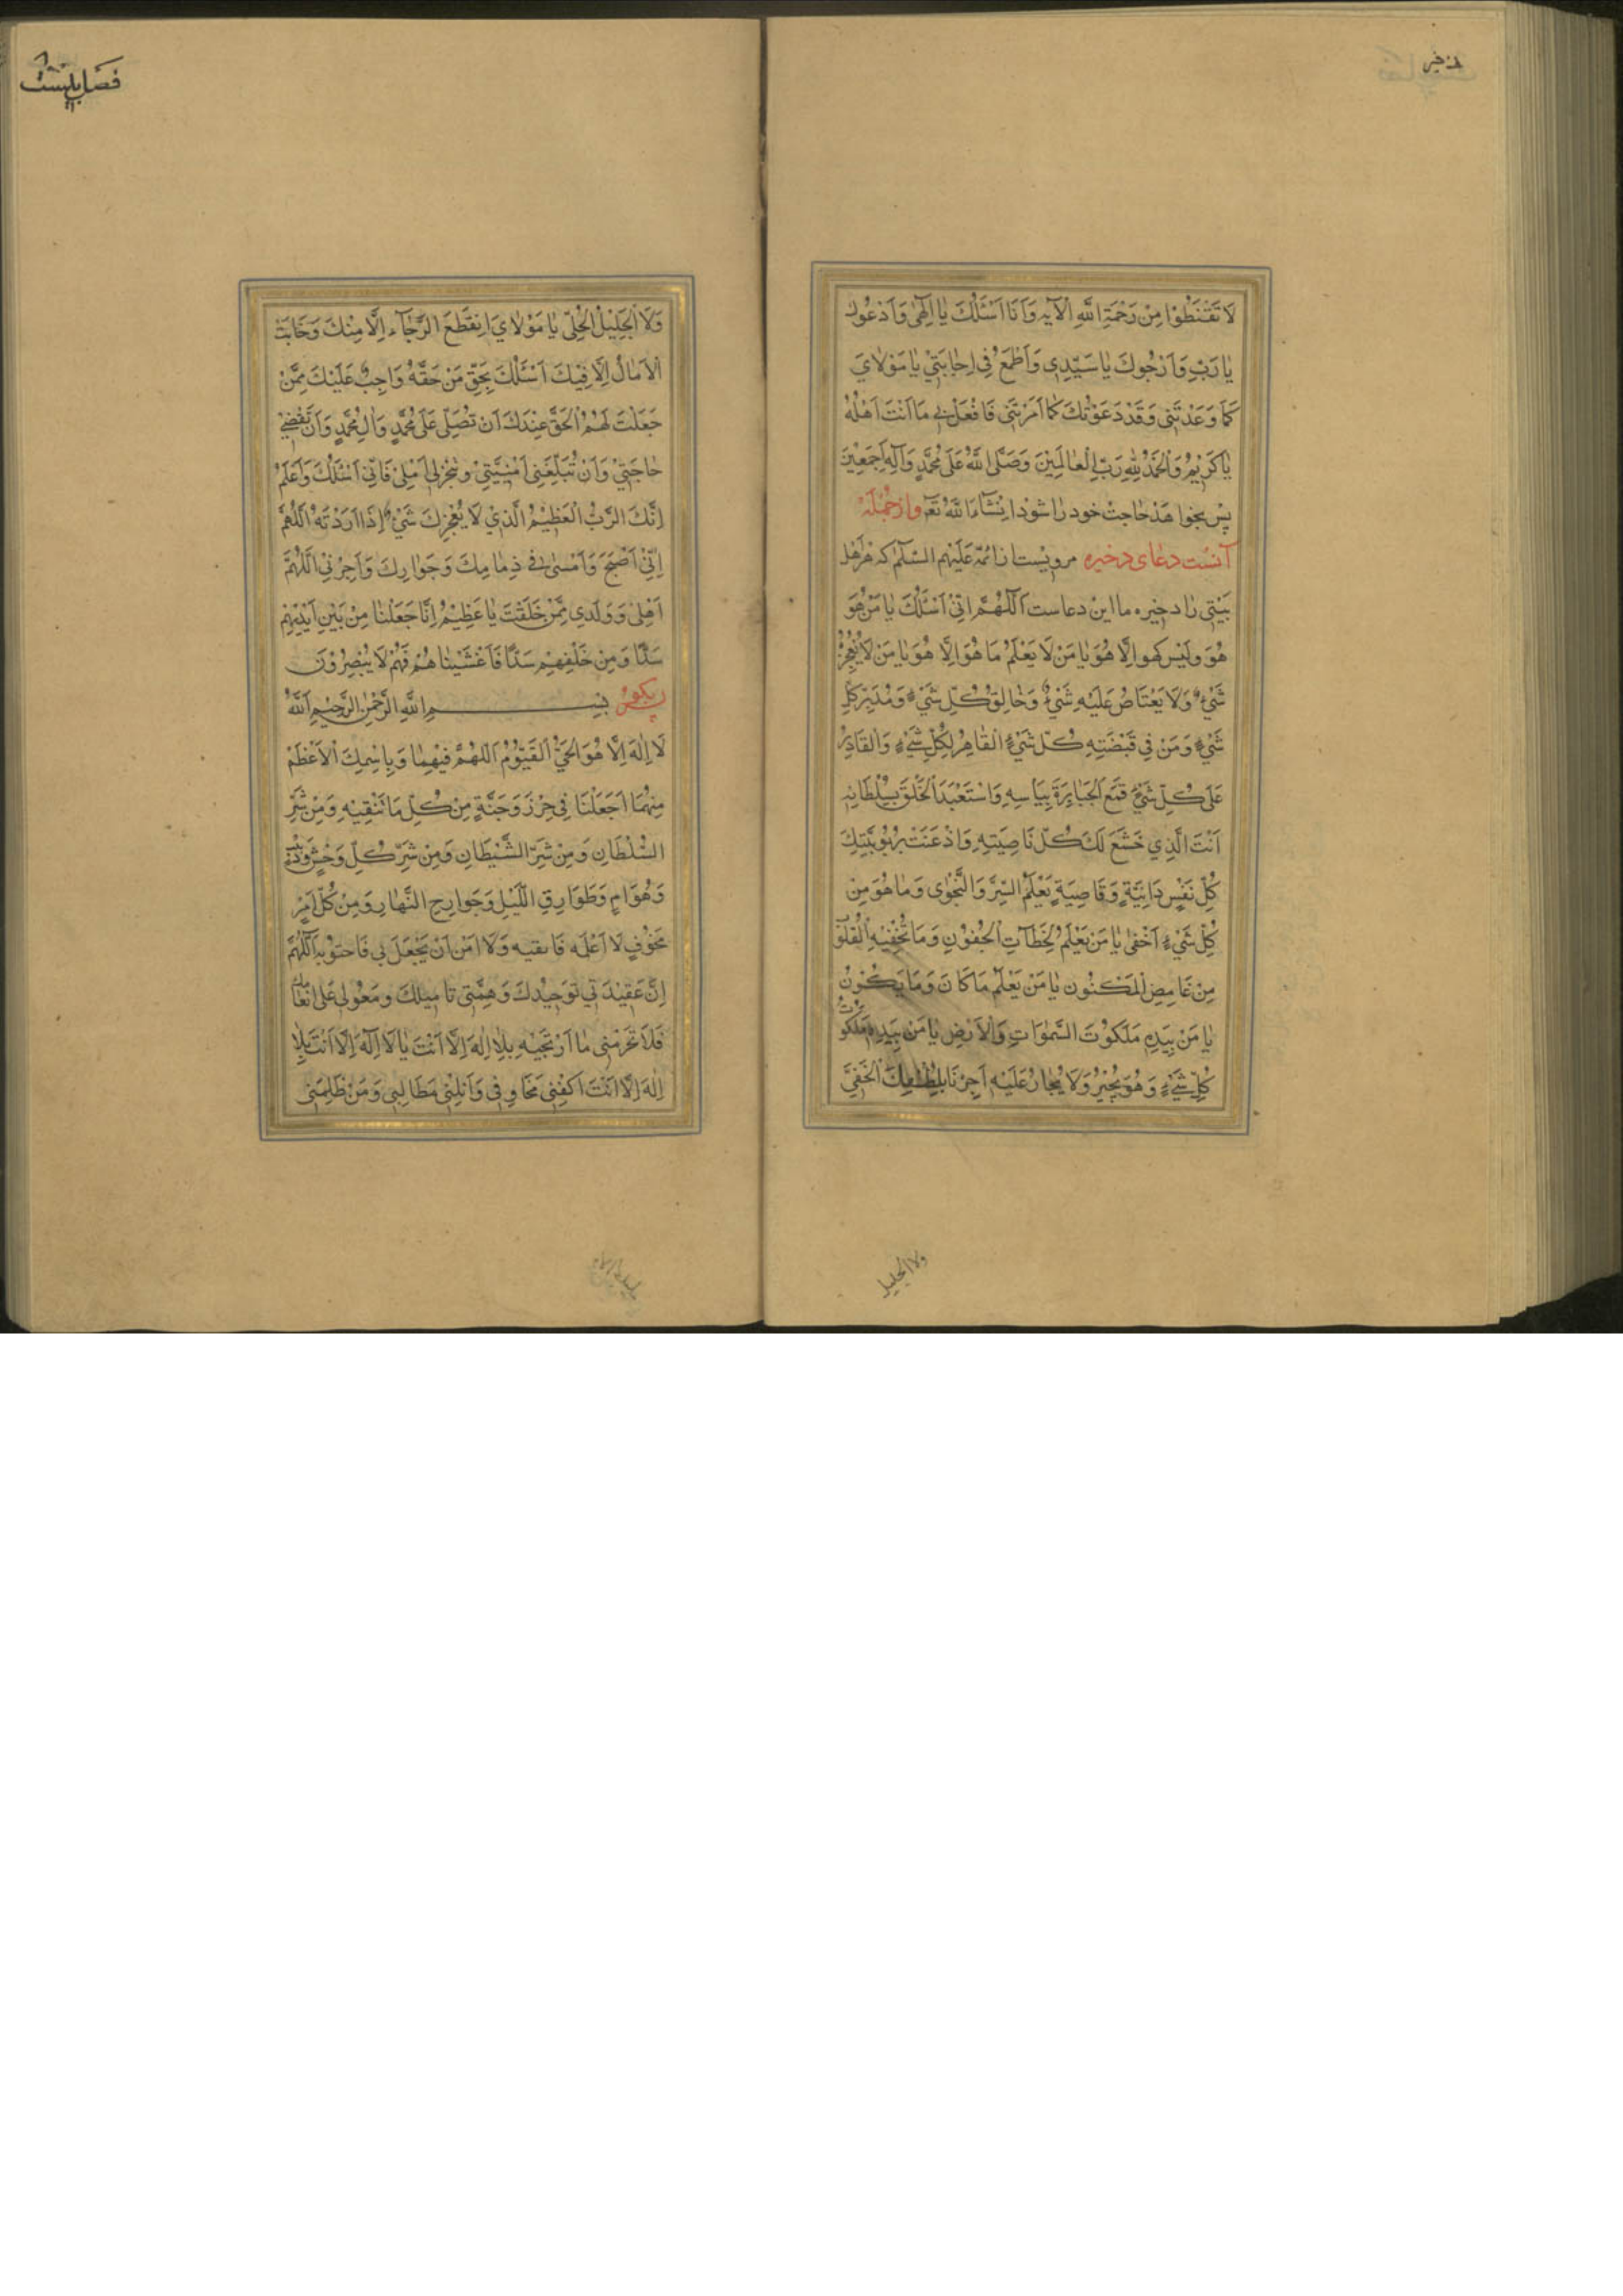 لَا تَقْنَطُوْا مِنْ رَحْمَةِ اللَّهِ الْآيه وَاَنَا اَسْئَلُكَ يَا اِلٰهِي وَاَدْعُوكَ
يَا رَبِّ وَاَرْجُوكَ يَا سَيِّدِي وَاَطْمَعُ فِي اِجَابَتِيْ يَا مَوْلَايَ
كَمَا وَعَدْتَنِي وَقَدْ دَعَوْتُكَ كَمَا اَمَرْتَنِي فَافْعَلْ بِي مَا اَنْتَ اَهْلُهُ
يَا كَرِيْمُ وَالْحَمْدُ لِلّٰهِ رَبِّ الْعَالَمِيْنَ وَصَلَّى اللَّهُ عَلَى مُحَمَّدٍ وَآلِهِ اَجْمَعِيْنَ
پس بخواهد حاجت خود را شود انشاء الله تعه و از جمله
آنست دعای دخیره مرویست از ائمه علیهم السلام که هر اهل
بیتی را دخیره ما این دعاست اَللّٰهُمَّ اِنِّيْ اَسْئَلُكَ يَا مَنْ هُوَ
هُوَ وليس كهو اِلَّا هُوَ يَا مَنْ لَا يَعْلَمُ مَا هُوَ اِلَّا هُوَ يَا مَنْ لَا يُعْجِزُهُ
شَيْءٌ وَلَا يَعْتَاصُ عَلَيْهِ شَيْءٌ وَخَالِقُ كُلِّ شَيْءٍ وَمُدَبِّرُ كُلِّ
شَيْءٍ وَمَنْ فِي قَبْضَتِهِ كُلُّ شَيْءٍ الْقَاهِرُ لِكُلِّ شَيْءٍ وَالْقَادِرُ
عَلَى كُلِّ شَيْءٍ قَمَعَ الْجَبَابِرَةَ بِبَأْسِهِ وَاسْتَعْبَدَ الْخَلْقَ بِسُلْطَانِهِ
اَنْتَ الَّذِي خَشَعَ لَكَ كُلُّ نَاصِيَتِهِ وَاذْعَنَتْ بِرُبُوبِيَّتِكَ
كُلُّ نَفْسٍ دَانِيَةٍ وَقَاصِيَةٍ يَعْلَمُ السِّرَّ وَالنَّجْوٰى وَمَا هُوَ مِنْ
كُلِّ شَيْءٍ اَخْفٰى يَا مَنْ يَعْلَمُ لَحَظَاتِ الْجُفُوْنِ وَمَا تُخْفِيْهِ الْقُلُوْبُ
مِنْ غَامِضِ الْمَكْنُون يَا مَنْ يَعْلَمُ مَا كَانَ وَمَا يَكُوْنُ
يَا مَنْ بِيَدِهِ مَلَكُوْتُ السَّمٰوَاتِ وَالْاَرْضِ يَا مَنْ بِيَدِهِ مَلَكُوْتُ
كُلِّ شَيْءٍ وَهُوَ يُجِيْرُ وَلَا يُجَارُ عَلَيْهِ اَجِرْنَا بِلُطْفِكَ الْخَفِيِّ
ولا الجليل
فصل بیست
وَلَا الْجَلِيْلِ الْجَلِيِّ يَا مَوْلَايَ اِنْقَطَعَ الرَّجَآءُ اِلَّا مِنْكَ وَخَابَتْ
الْاٰمَالُ اِلَّا فِيْكَ اَسْئَلُكَ بِحَقِّ مَنْ حَقُّهُ وَاجِبٌ عَلَيْكَ مِمَّنْ
جَعَلْتَ لَهُمُ الْحَقَّ عِنْدَكَ اَنْ تُصَلِّيَ عَلَى مُحَمَّدٍ وَاٰلِ مُحَمَّدٍ وَاَنْ تَقْضِيَ
حَاجَتِيْ وَاَنْ تُبَلِّغَنِي اُمْنِيَّتِيْ وتنجز لي اَمَلِي فَاِنِّي اَسْئَلُكَ وَاَعْلَمُ
اِنَّكَ الرَّبُّ الْعَظِيْمُ الَّذِيْ لَا يُعْجِزُكَ شَيْءٌ اِذَا اَرَدْتَهُ اَللّٰهُمَّ
اِنِّيْ اَصْبَحَ وَاَمْسٰى فِي ذِمَامِكَ وَجِوَارِكَ وَاَجِرْنِي اَللّٰهُمَّ
اَهْلِي وَوَلَدِي مِمَّنْ خَلَقْتَ يَا عَظِيْمُ اِنَّا جَعَلْنَا مِنْ بَيْنِ اَيْدِيْهِمْ
سَدًّا وَمِنْ خَلْفِهِمْ سَدًّا فَاَغْشَيْنَاهُمْ فَهُمْ لَا يُبْصِرُوْنَ
پس بگو بِسْمِ اللَّهِ الرَّحْمٰنِ الرَّحِيْمِ اَللَّهُ
لَا اِلٰهَ اِلَّا هُوَ الْحَيُّ الْقَيُّوْمُ اَللّٰهُمَّ فِيْهِمَا وَبِاسْمِكَ الْاَعْظَمُ
مِنْهُمَا اجْعَلْنَا فِي حِرْزٍ وَجُنَّةٍ مِنْ كُلِّ مَا نَتَّقِيْهِ وَمِنْ شَرِّ
السُّلْطَانِ وَمِنْ شَرِّ الشَّيْطَانِ وَمِنْ شَرِّ كُلِّ وَحْشٍ
وَهَوَامٍّ وَطَوَارِقِ اللَّيْلِ وَجَوَارِحِ النَّهَارِ وَمِنْ كُلِّ اَمْرٍ
مَخُوْفٍ لَا اَعْلَمُهُ فَاتقيه وَلَا اٰمَنُ اَنْ يَجْعَلَ بِي اَللّٰهُمَّ
اِنَّ عَقِيْدَتِي تَوْحِيْدُكَ وَهِمَّتِي تَامِيْلُكَ وَمُعَوَّلِي عَلَى اِنْعَامِكَ
فَلَا تَحْرِمْنِي مَا اَرْتَجِيْهِ بِلَا اِلٰهَ اِلَّا اَنْتَ يَا لَا اِلٰهَ اِلَّا اَنْتَ بِلَا
اِلٰهَ اِلَّا اَنْتَ اكْفِنِي مَخَاوِفِي وَاَنِلْنِي مَطَالِبِي وَمَنْ ظَلَمَنِي